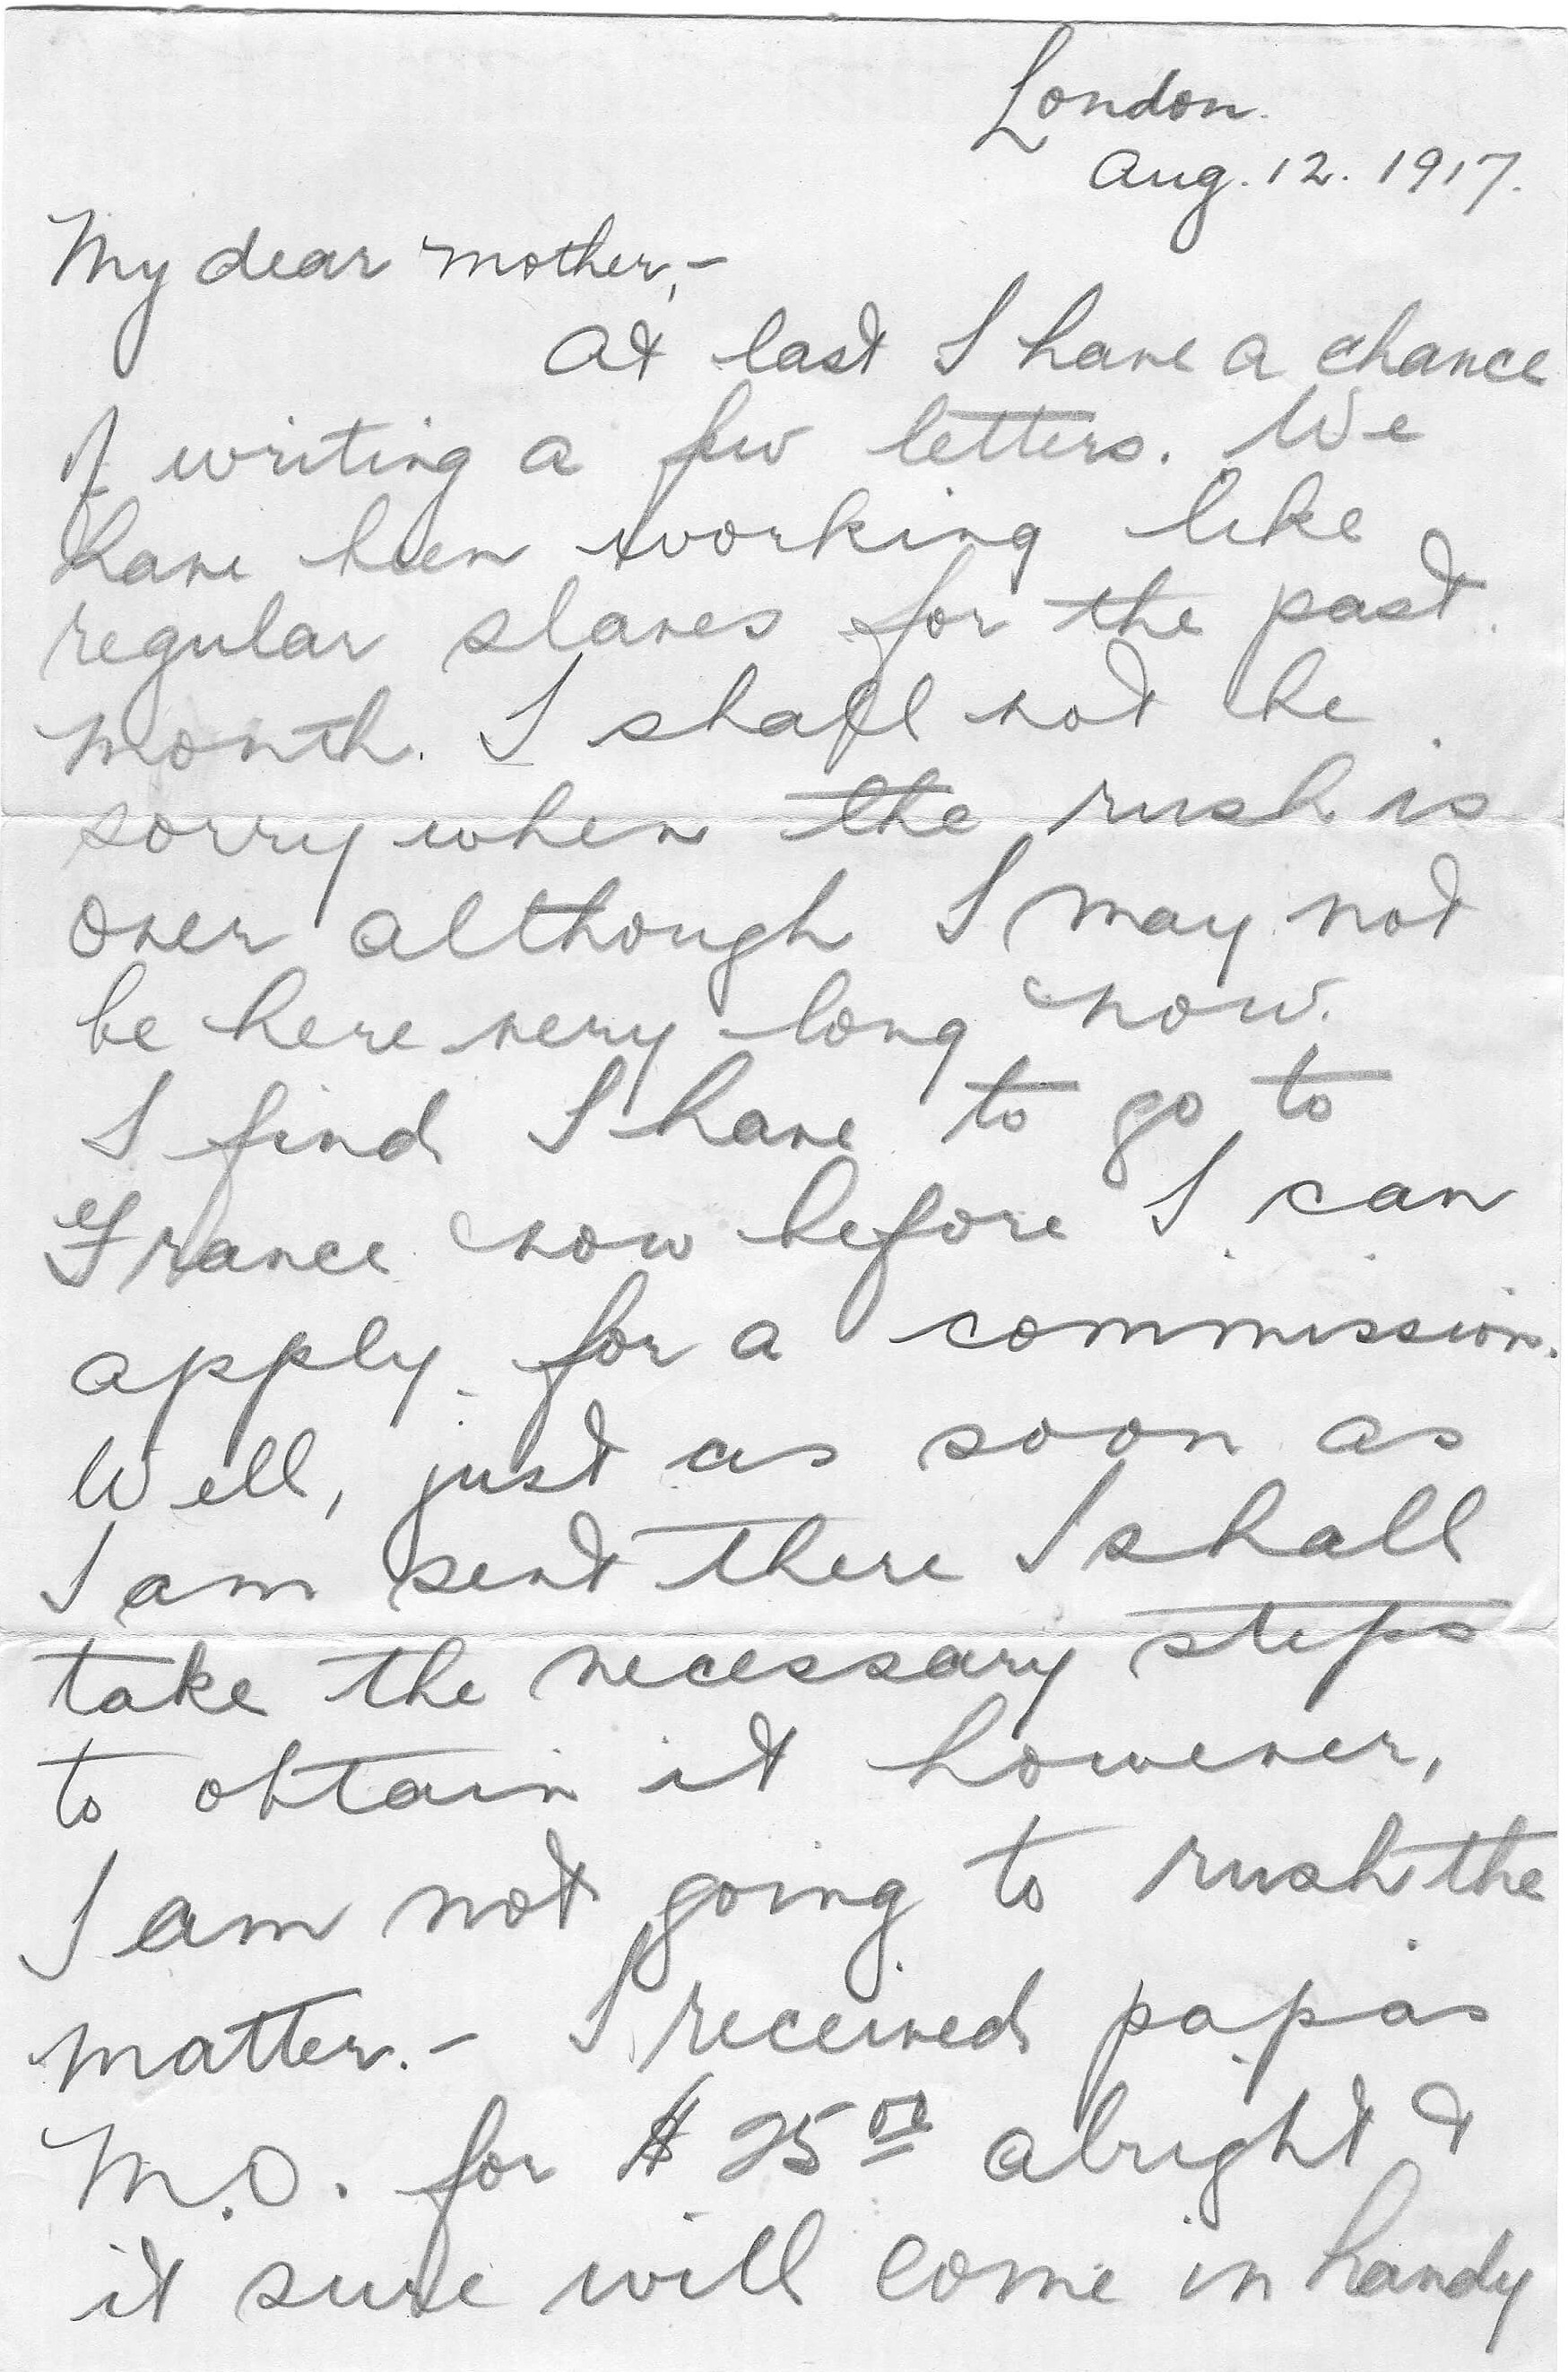 London.
Aug. 12. 1917.
My dear mother,-
At last I have a chance
of writing a few letters. We
have been working like
regular slaves for the past
month. I shall not be
sorry when the rush is
over although I may not
be here very long now.
I find I have to go to
France now before I can
apply for a commission.
Well, just as soon as
I am sent there I shall
take the necessary steps
to obtain it however,
I am not going to rush the
matter.- I received papas
M.O. for $25.00 alright &
it sure will come in handy